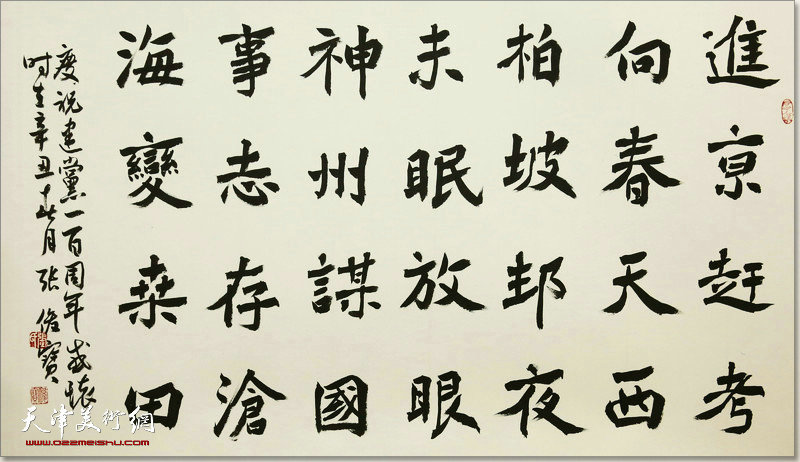 進亰赶考
向春天西
柏坡邨夜
未眠放眼
神州謀國
事志存滄
海變桒田
慶祝建黨一百周年感懷
时在辛丑月張寶
天津美術網
www.022meishu.com